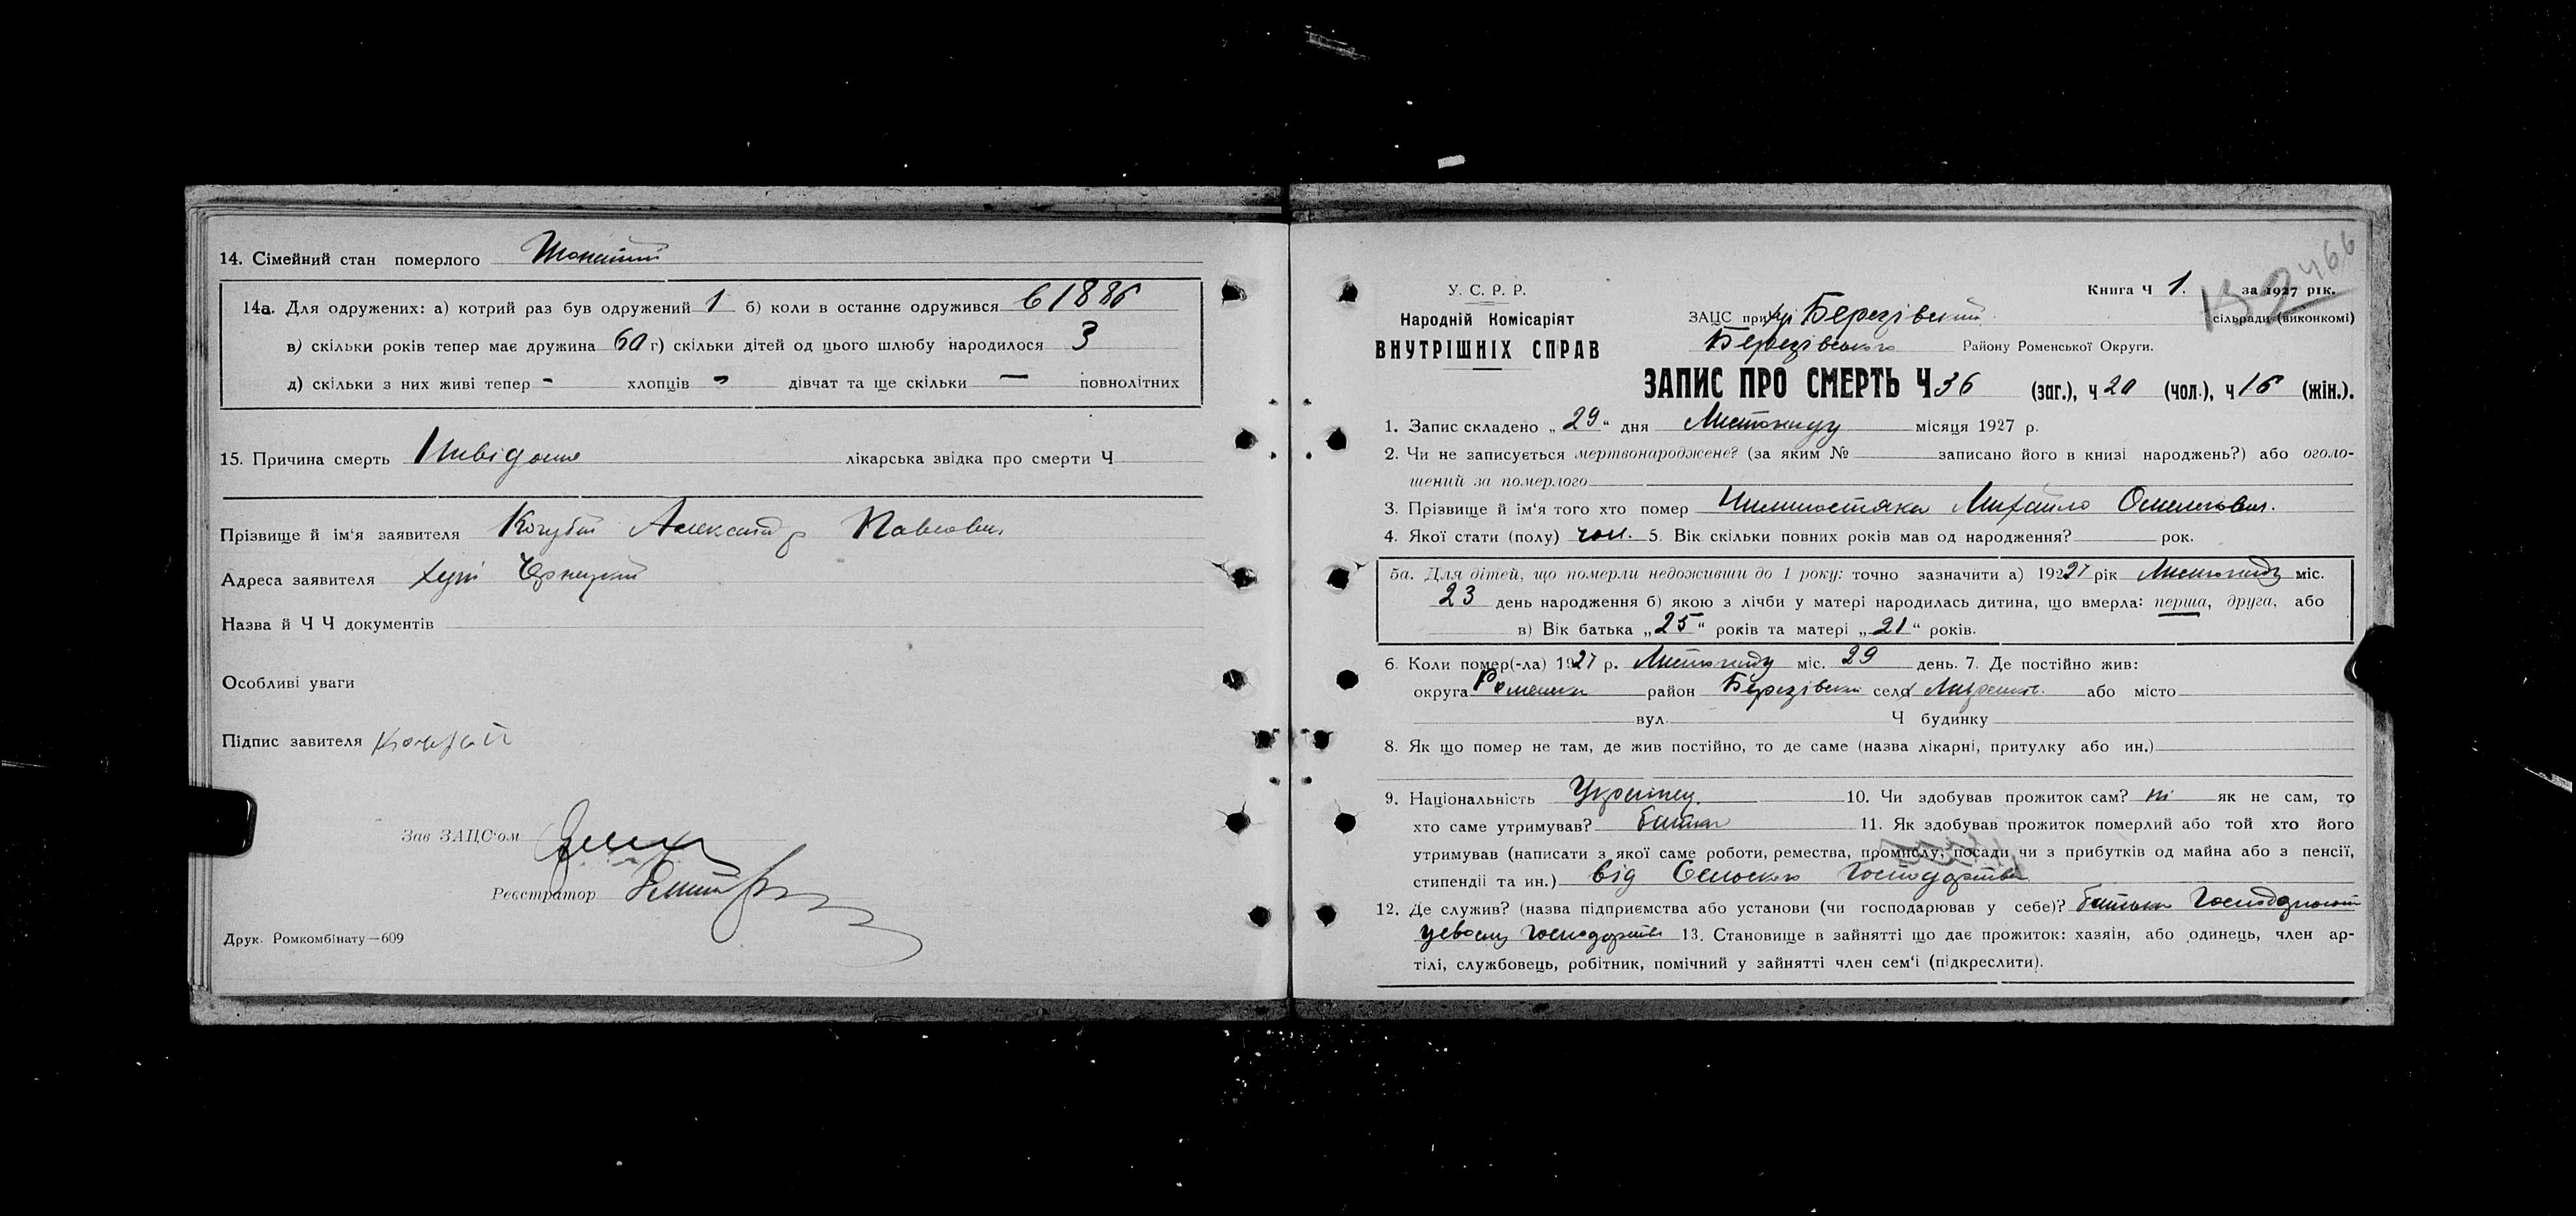 14. Сімейний стан померлого
14а. Для одружених: а) котрий раз був одружений 1 б) коли в останнє одружився в 1886
в) скільки років тепер має дружина 60 г) скільки дітей од цього шлюбу народилося 3
д) скільки з них живі тепер - хлопців - дівчат та ще скільки — повнолітних
15. Причина смерть лікарська звідка про смерти Ч
Прізвище й ім'я заявителя Кочубей Александр Павлович
Адреса заявителя хут.
Назва й Ч Ч документів
Особливі уваги
Підпис завителя Кочубей
Зав ЗАЦС'ом
Реєстратор
Друк. Ромкомбінату—609
466
132
У. С. Р. Р.
Народній Комісаріят
ВНУТРІШНІХ СПРАВ
Книга Ч 1. за 1927 рік.
ЗАЦС при Березівський сільради (виконкомі)
Березівського Району Роменської Округи.
ЗАПИС ПРО СМЕРТЬ Ч 36 (заг.), ч 20 (чол.), ч 16 (жін.).
1. Запис складено „29“ дня Листопаду місяця 1927 р.
2. Чи не записується мертвонароджене? (за яким № записано його в книзі народжень?) або оголо-
шений за померлого
3. Прізвище й ім'я того хто помер Михайло
4. Якої стати (полу) чол. 5. Вік скільки повних років мав од народження? рок.
5а. Для дітей, що померли недоживши до 1 року: точно зазначити а) 1927 рік Листопаду міс.
23 день народження б) якою з лічби у матері народилась дитина, що вмерла: перша, друга, або
в) Вік батька „25“ років та матері „21“ років.
6. Коли помер(-ла) 1927 р. Листопаду міс. 29 день. 7. Де постійно жив:
округа Роменськ район Березівськ село або місто
вул. Ч будинку
8. Як що помер не там, де жив постійно, то де саме (назва лікарні, притулку або ин.)
9. Національність Українец. 10. Чи здобував прожиток сам? ні як не сам, то
хто саме утримував? батько 11. Як здобував прожиток померлий або той хто його
утримував (написати з якої саме роботи, ремества, промислу, посади чи з прибутків од майна або з пенсії,
стипендії та ин.) від Сельского Господарства
12. Де служив? (назва підприємства або установи (чи господарював у себе)? батько
усвоєму господарстві 13. Становище в зайнятті що дає прожиток: хазяїн, або одинець, член ар-
тілі, службовець, робітник, помічний у зайнятті член сем'і (підкреслити).